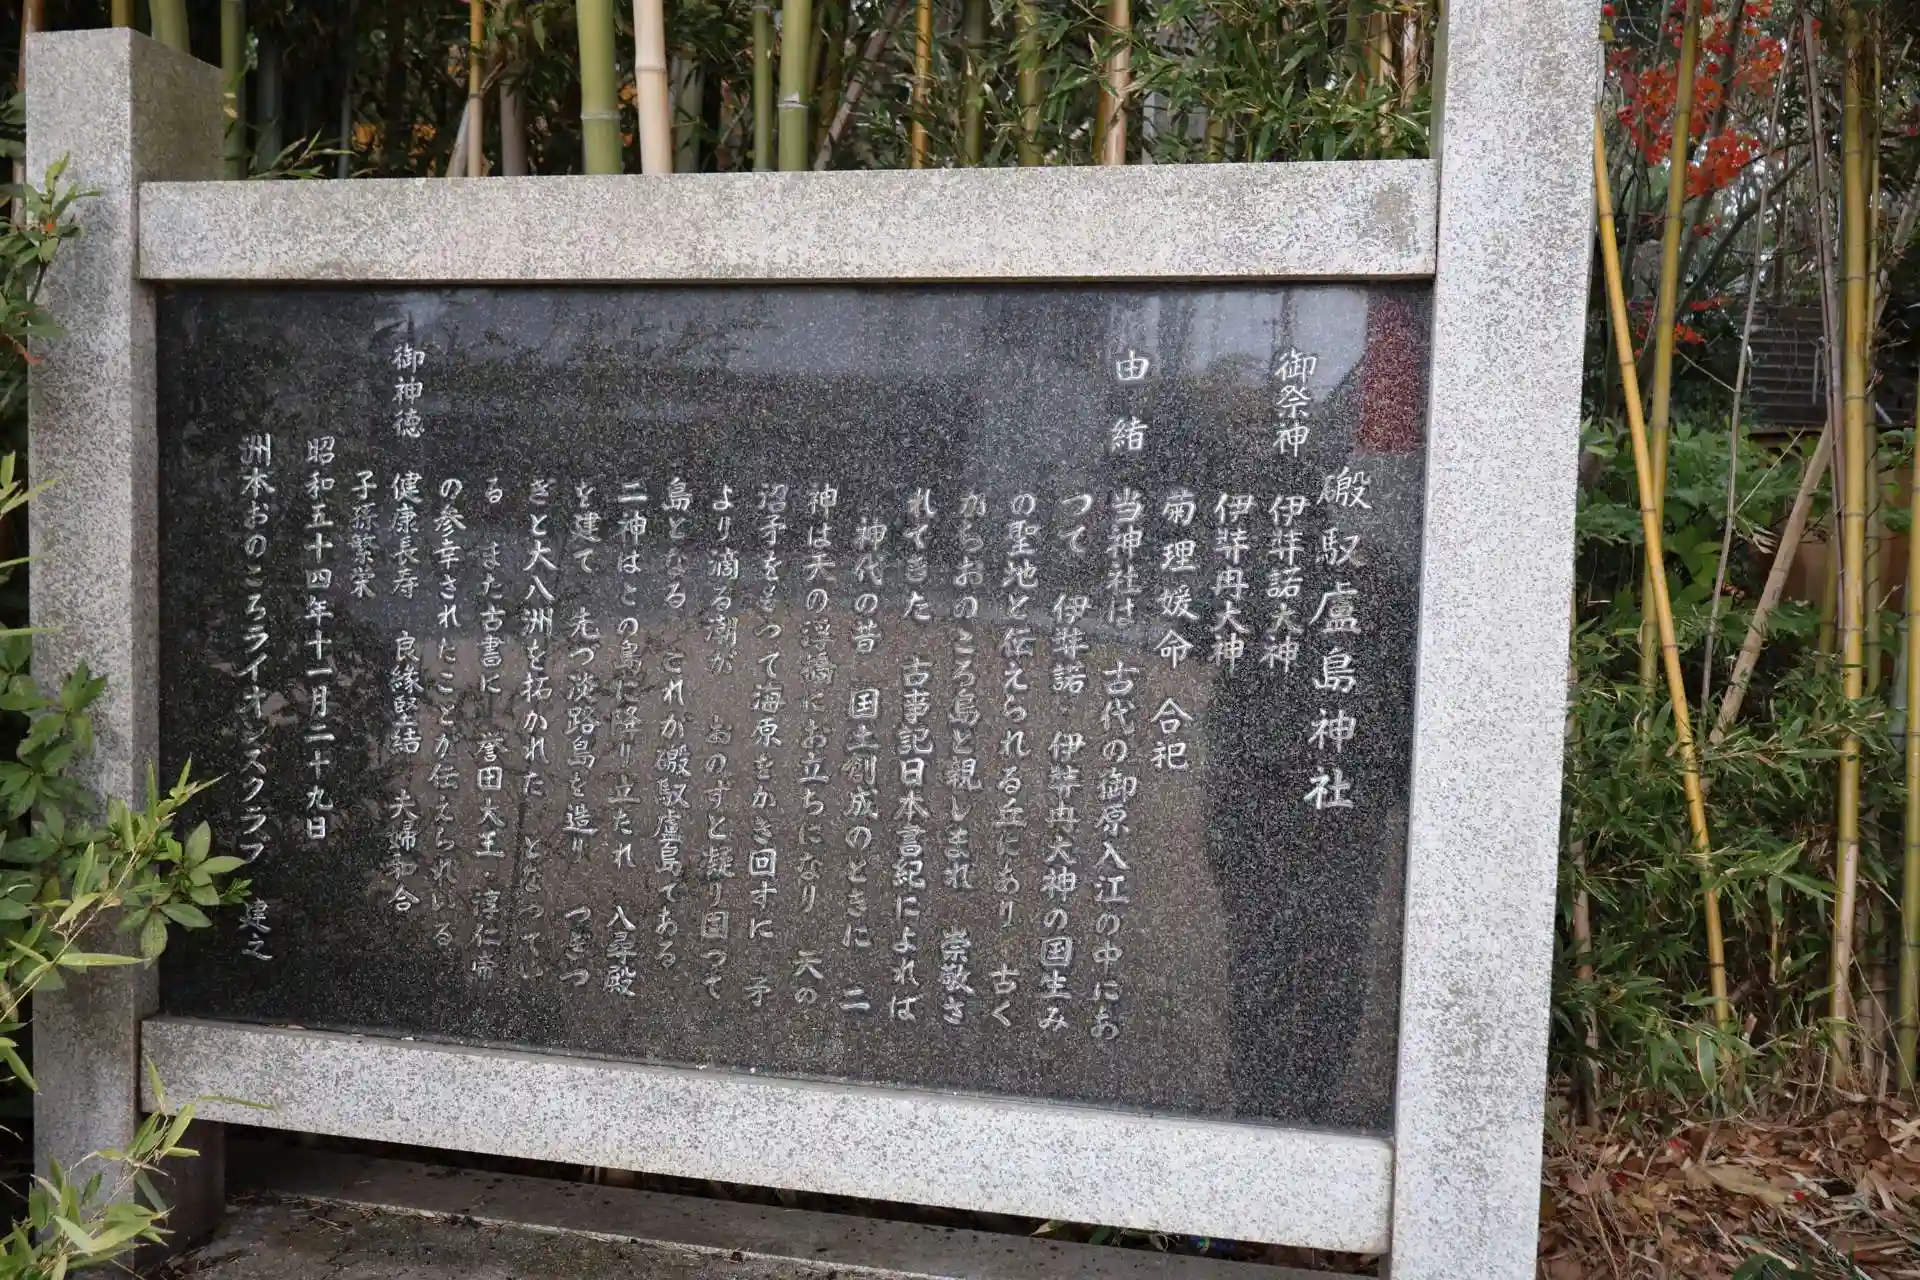 磤馭盧島神社
御祭神 伊弉諾大神
伊弉冉大神
菊理媛命 合祀
由緒 当神社は 古代の御原入江の中にあ
つて 伊弉諾・伊弉冉大神の国生み
の聖地と伝えられる丘にあり 古く
からおのころ島と親しまれ 崇敬さ
れてきた 古事記日本書紀によれば
神代の昔 国土創成のときに 二
神は天の浮橋にお立ちになり 天の
沼矛をもつて海原をかき回すに 矛
より滴る潮が おのずと凝り固つて
島となる これが磤馭盧島である
二神はこの島に降り立たれ 八尋殿
を建て 先づ淡路島を造り つぎつ
ぎと大八洲を拓かれた となつてい
る また古書に 誉田大王・淳仁帝
の参幸されたことが伝えられいる
御神徳 健康長寿 良縁堅結 夫婦和合
子孫繁栄
昭和五十四年十一月二十九日
洲本おのころライオンズクラブ 建之